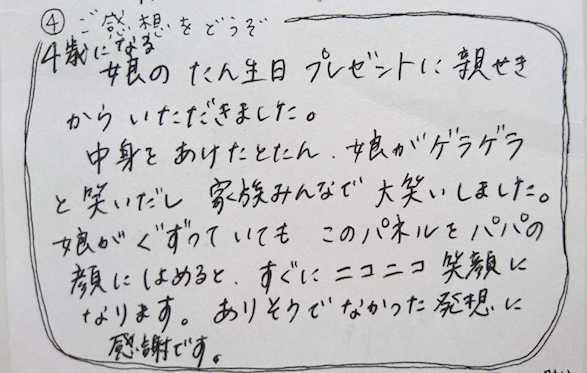 ④ ご感想をどうぞ
4歳になる
娘の たん生日 プレゼントに 親せき
から いただきました。
中身を あけたとたん、娘がゲラゲラ
と 笑いだし 家族みんなで 大笑いしました。
娘が ぐずって いても このパネルを パパの
顔に はめると、すぐに ニコニコ 笑顔に
なります。ありそうで なかった 発想に
感謝です。